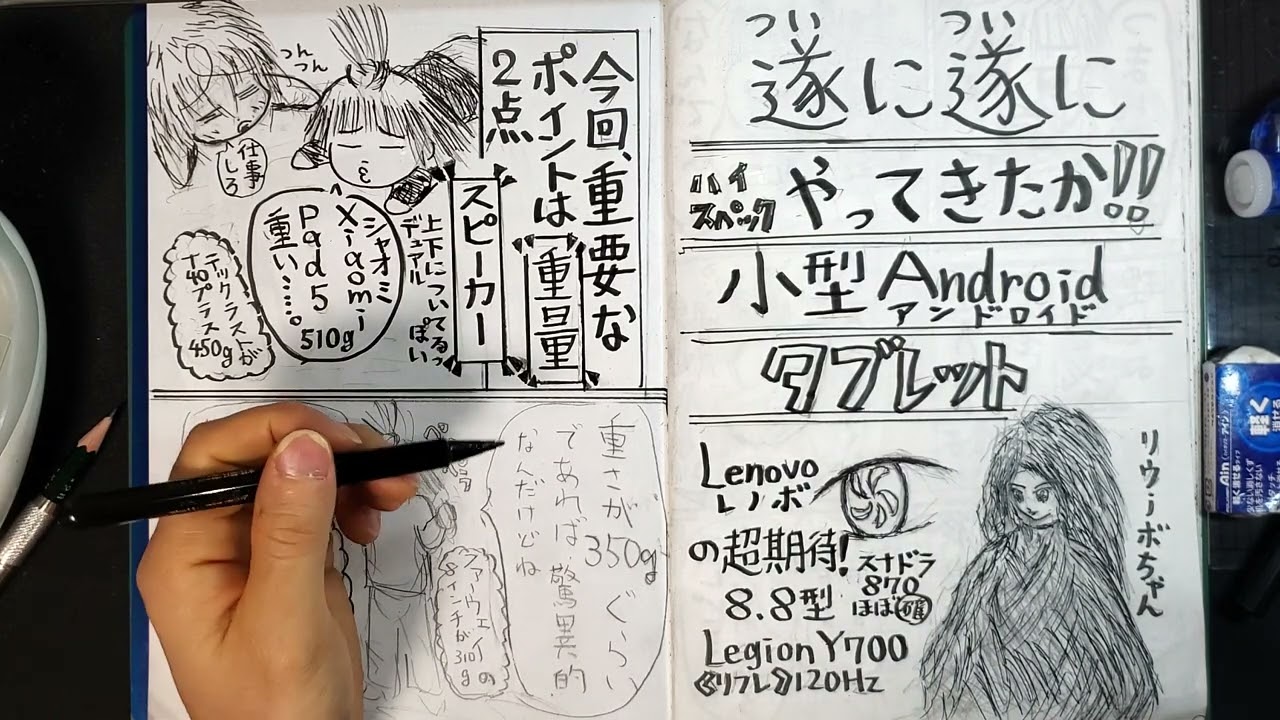 遂に遂に
つい つい
ハイスペック
やってきたか!!
小型Android
アンドロイド
タブレット
Lenovo
レノボ
の超期待!
8.8型
スナドラ
870
ほぼ確
LegionY700
《リフレ》120Hz
リウーボちゃん
今回、重要な
ポイントは
2点
重量
スピーカー
上下についてるっぽい
デュアル
つんつん
仕事しろ
シャオミ
Xiaomi
Pad5
重い……。
510g
テックラストが
T40プラス
450g
重さが
350gぐらい
であれば、驚異的
なんだけどね
ファーウェイの
8インチが
310g
Ain
軽く
消せる